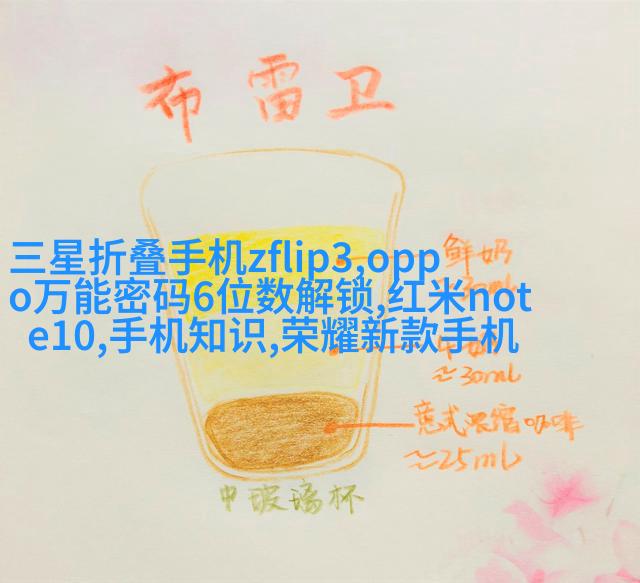 布雷卫
三星折叠手机zflip3,opp
o万能密码6位数解锁,红米not
e10,手机知识,荣耀新款手机
鲜奶
≈30ml
意式浓缩咖啡
≈25ml
中玻璃杯